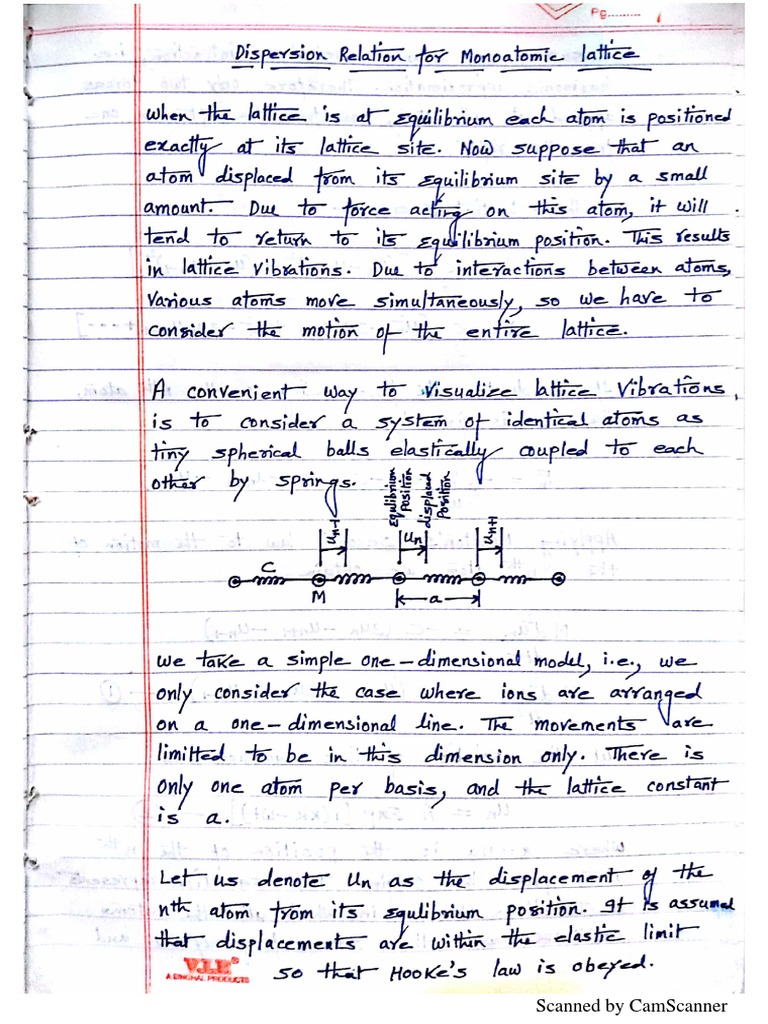 Pg. 1
Dispersion Relation for Monoatomic lattice
when the lattice is at equilibrium each atom is positioned
exactly at its lattice site. Now suppose that an
atom displaced from its equilibrium site by a small
amount. Due to force acting on this atom, it will
tend to return to its equilibrium position. This results
in lattice vibrations. Due to interactions between atoms,
various atoms move simultaneously, so we have to
consider the motion of the entire lattice.
A convenient way to visualize lattice vibrations,
is to consider a system of identical atoms as
tiny spherical balls elastically coupled to each
other by springs.
equlibrium position
displaced position
Un-1
Un
Un+1
C
M
a
we take a simple one-dimensional model, i.e., we
only consider the case where ions are arranged
on a one-dimensional line. The movements are
limitted to be in this dimension only. There is
only one atom per basis, and the lattice constant
is a.
Let us denote Un as the displacement of the
nth atom from its equlibrium position. It is assumed
that displacements are within the elastic limit
so that HOOKE's law is obeyed.
V.I.P.®
A SINGHAL PRODUCTS
Scanned by CamScanner